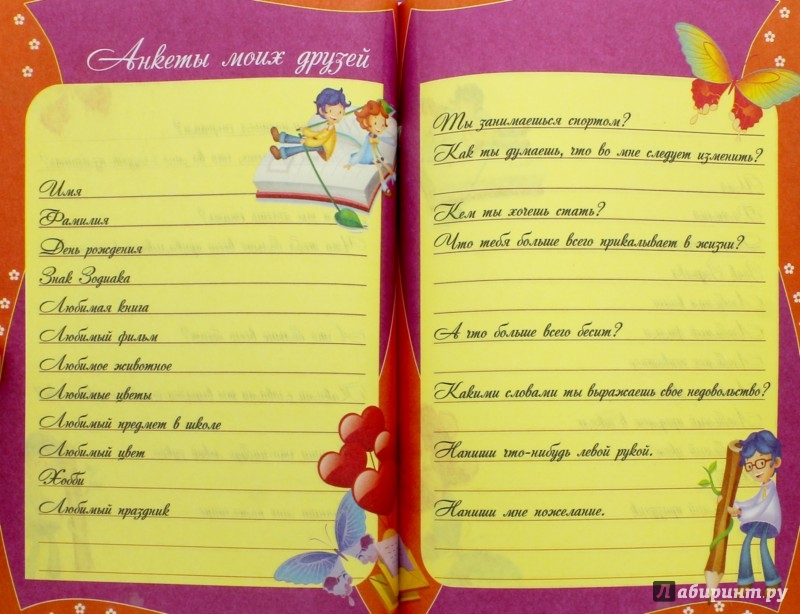 Анкеты моих друзей
Имя
Фамилия
День рождения
Знак Зодиака
Любимая книга
Любимый фильм
Любимое животное
Любимые цветы
Любимый предмет в школе
Любимый цвет
Хобби
Любимый праздник
Ты занимаешься спортом?
Как ты думаешь, что во мне следует изменить?
Кем ты хочешь стать?
Что тебя больше всего прикалывает в жизни?
А что больше всего бесит?
Какими словами ты выражаешь свое недовольство?
Напиши что-нибудь левой рукой.
Напиши мне пожелание.
Лабиринт.ру